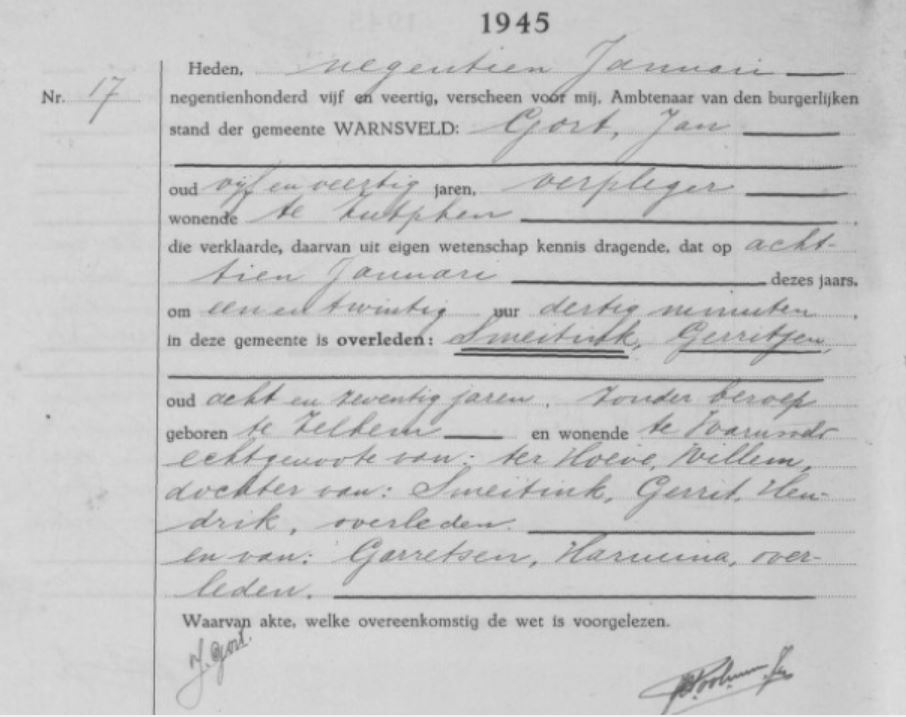 1945
Heden, negentien Januari
Nr. 17
negentienhonderd vijf en veertig, verscheen voor mij, Ambtenaar van den burgerlijken
stand der gemeente WARNSVELD: Gort, Jan
oud vijf en veertig jaren, verpleger
wonende te Zutphen
die verklaarde, daarvan uit eigen wetenschap kennis dragende, dat op acht-
tien Januari dezes jaars,
om een en twintig uur dertig minuten
in deze gemeente is overleden: Smeitink, Gerritjen,
oud acht en zeventig jaren, zonder beroep
geboren te Zelhem en wonende te
echtgenoote van: ter Hoeve, Willem,
dochter van: Smeitink, Gerrit, Hen-
drik, overleden.
en van: Garretsen, Harmina, over-
leden.
Waarvan akte, welke overeenkomstig de wet is voorgelezen.
J. Gort.